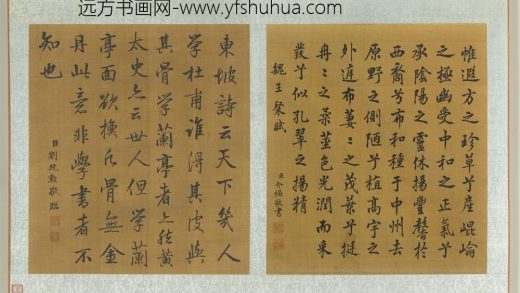 远方书画网- www.yfshuhua.com
惟遐方之珍草兮產崐崙
之極幽受中和之正氣兮
承陰陽之靈休揚豐馨於
西裔兮布和種于中州去
原野之側陋兮植高宇之
外庭布萋〻之茂葉兮挺
冉〻之柔莖色光潤而采
發兮似孔翠之揚精
魏王粲賦
臣介福敬書
東坡詩云天下幾人
學杜甫誰得其皮與
其骨學蘭亭者亦然黃
太史亦云世人但學蘭
亭面欲換凡骨無金
丹此意非學書者不
知也
臣劉統勳敬臨